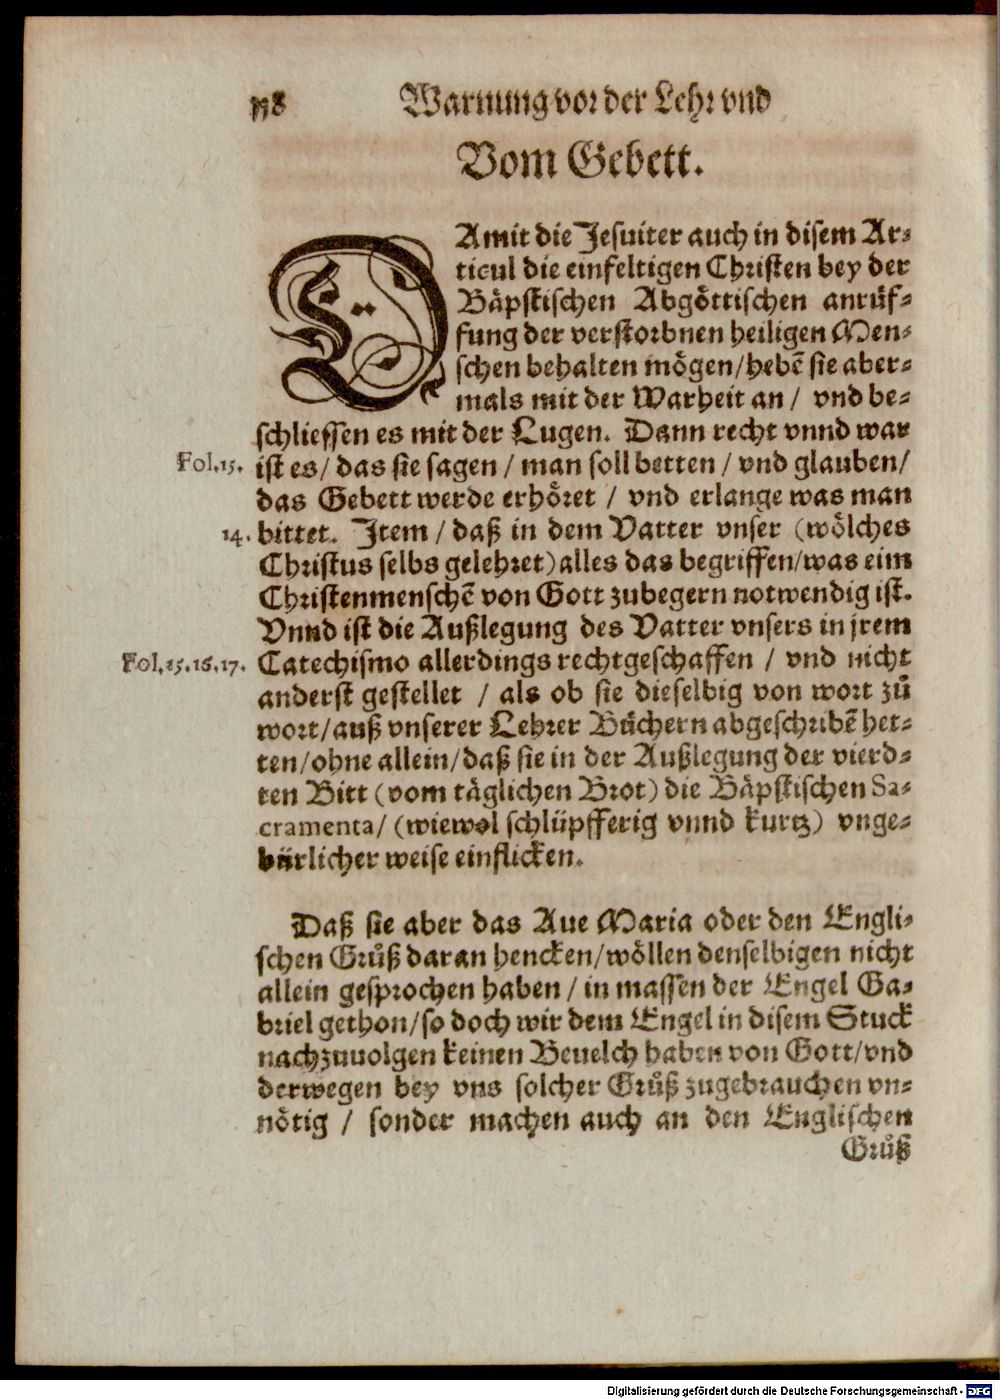 Warnung vor der Lehr vnd
Vom Gebett.
DAmit die Jesuiter auch in disem Ar-
ticul die einfeltigen Christen bey der
Bäpstischen Abgöttischen anrüf-
fung der verstorbnen heiligen Men-
schen behalten mögen/hebē sie aber-
mals mit der Warheit an / vnd be-
schliessen es mit der Lugen. Dann recht vnnd war
Fol.15. ist es/ das sie sagen / man soll betten / vnd glauben/
das Gebett werde erhöret / vnd erlange was man
14. bittet. Item / daß in dem Vatter vnser (wölches
Christus selbs gelehret) alles das begriffen/was eim
Christenmenschē von Gott zubegern notwendig ist.
Vnnd ist die Außlegung des Vatter vnsers in jrem
Fol.15.16.17. Catechismo allerdings rechtgeschaffen / vnd nicht
anderst gestellet / als ob sie dieselbig von wort zů
wort/auß vnserer Lehrer Büchern abgeschribē het-
ten/ohne allein/daß sie in der Außlegung der vierd-
ten Bitt (vom täglichen Brot) die Bäpstischen Sa-
cramenta/ (wiewol schlüpfferig vnnd kurtz) vnge-
bürlicher weise einflicken.
Daß sie aber das Aue Maria oder den Engli-
schen Grůß daran hencken/wöllen denselbigen nicht
allein gesprochen haben / in massen der Engel Ga-
briel gethon/so doch wir dem Engel in disem Stuck
nachzuuolgen keinen Beuelch haben von Gott/vnd
derwegen bey vns solcher Grůß zugebrauchen vn-
nötig / sonder machen auch an den Englischen
Grůß
Digitalisierung gefördert durch die Deutsche Forschungsgemeinschaft - DFG